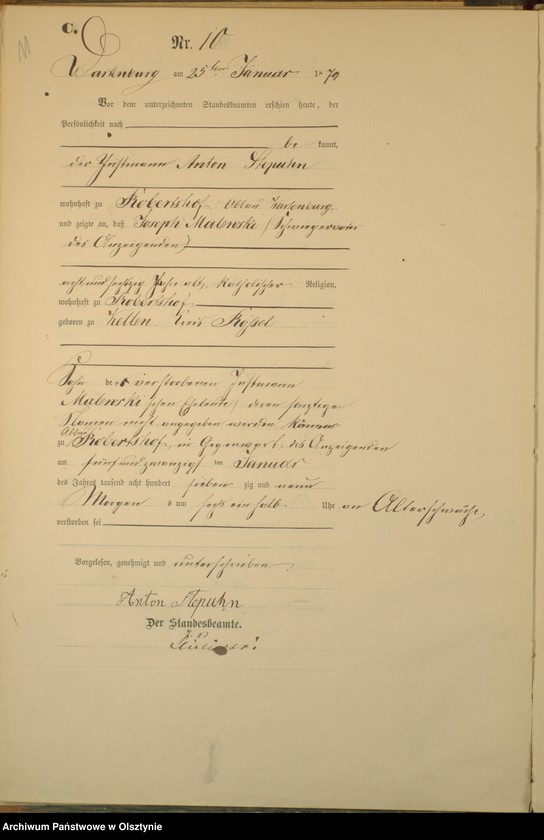 C.
Nr. 10
Wartenburg am 25ten Januar 1879
Vor dem unterzeichneten Standesbeamten erschien heute, der
Persönlichkeit nach
be kannt,
der Instmann Anton Stepuhn
wohnhaft zu Robertshof Abbau Wartenburg
und zeigte an, daß Joseph Malewski (Schwiegervater
des Anzeigenden)
acht und sechzig Jahr alt, katholischer Religion,
wohnhaft zu Robertshof
geboren zu Kellen Kreis Rößel
Sohn der verstorbenen Instmann
Malewski schen Eheleute, deren sonstige
Namen nicht angegeben werden können
zu Abbau Robertshof, in Gegenwart des Anzeigenden
am fünf und zwanzigsten Januar
des Jahres tausend acht hundert sieben zig und neun
Morgens um sechs ein halb Uhr an Altersschwäche,
verstorben sei
Vorgelesen, genehmigt und unterschrieben.
Anton Stepuhn
Der Standesbeamte.
Archiwum Państwowe w Olsztynie